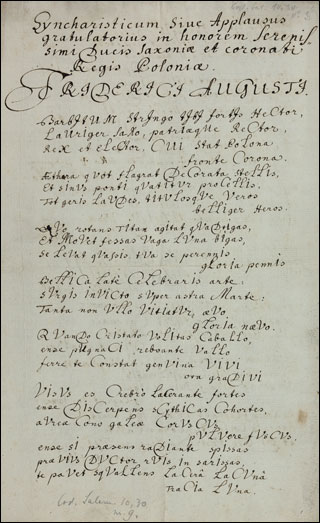 Syncharisticum, Siue Applausus
gratulatorius in honorem Serenis
simi Ducis Saxoniæ et coronati
Regis Poloniæ.
FRIDERICI AUGUSTI.
BarBItUM StrIngo tIbI fortIs Hector,
LaUrIger SaXo, patrIæqUe Rector,
ReX et eLeCtor, CUI Stat PoLona
fronte Corona.
Æthera qVot fLagrat DeCorata SteLLIs,
Et sInUs pontI qVatItVr proCeLLIs,
Tot gerIs LaUDes, tItVLosqUe Veros
beLLIger Heros.
qVo rotans TItan agItat qVaDrIgas,
Et MoVet fessas Vaga LVna bIgas,
Se LeVat qVassIs tVa se perennIs
gLorIa pennIs
BeLLICa Late CeLebrarIs arte,
SVrgIs InVICto sVper astra Marte:
Tanta non VLLo VItIetVr, æVo,
gLorIa næVo.
QVanDo CrIstato VoLItas CabaLLo,
ense pVgnaCI, reboante VaLLo
ferre te Constat genVIna VIVI
ora graDIVI
VIsVs es Crebro LaCerante fortes
ense DIsCerpens sCythICas Cohortes,
aVrea Cono gaLeæ CorVsCVs
pVLVere fVsCVs.
ense sI præsens raDIante spIssas
præVIVs DVCtor rVIs In sarIssas,
te paVet sqVaLLens LaCera LaCVna
TraCIa LVna.
Cod. Salem. 10,30